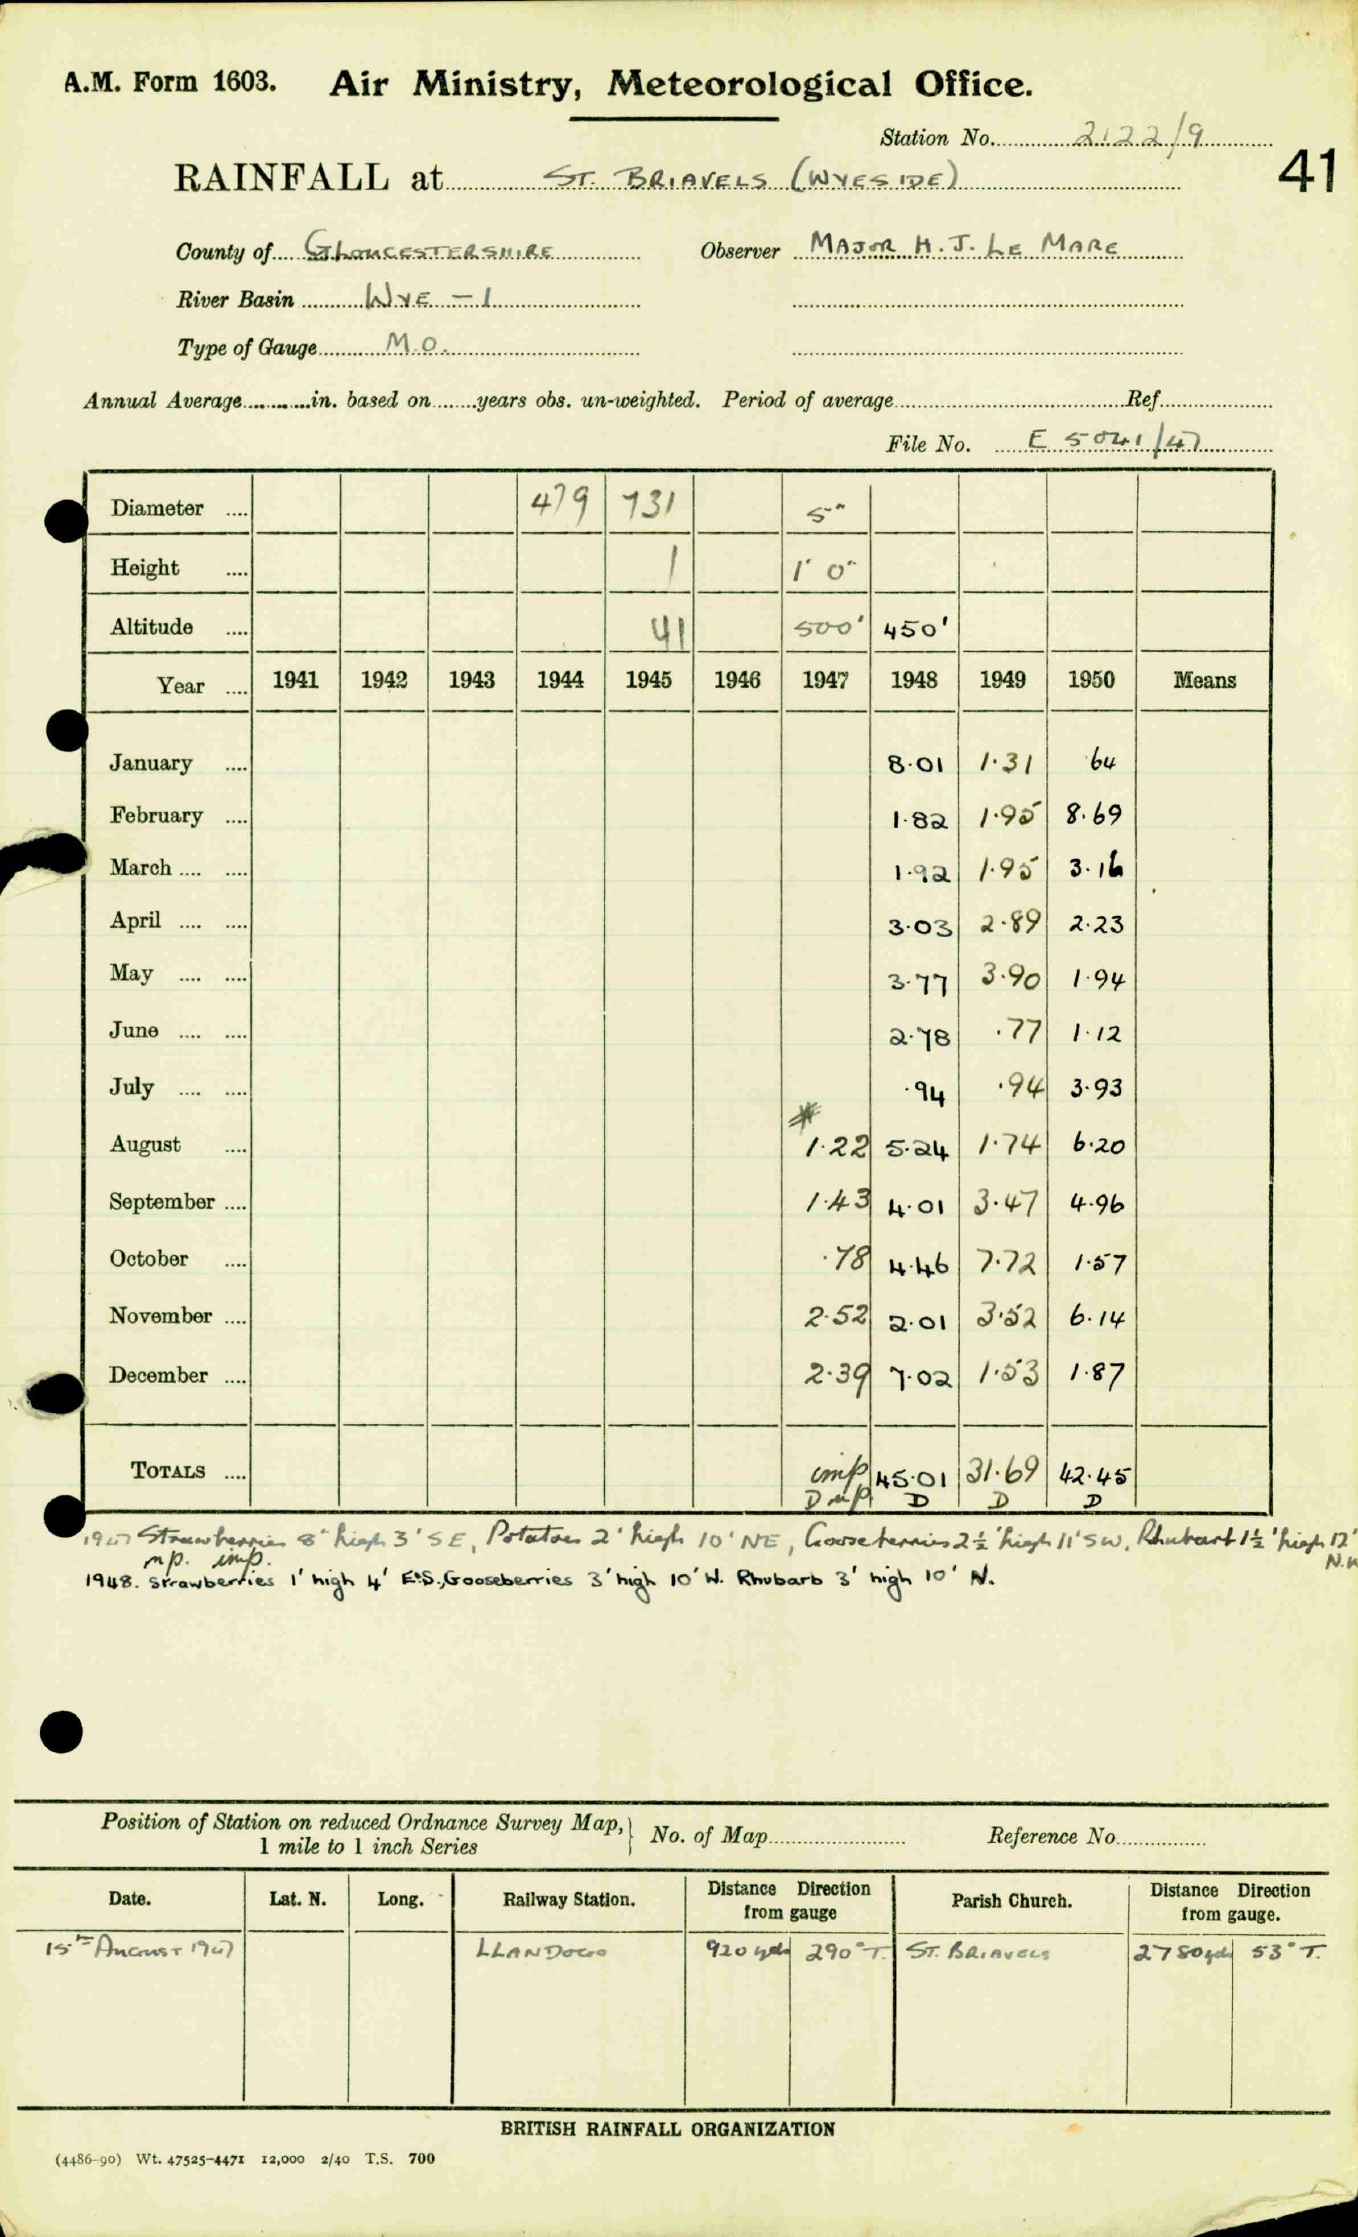 A.M. Form 1603. Air Ministry, Meteorological Office.
Station No. 2122/9
41
RAINFALL at ST. BRIAVELS (WYESIDE)
County of GLOUCESTERSHIRE Observer MAJOR H. J. LE MARE
River Basin WYE - 1
Type of Gauge M.O.
Annual Average in. based on years obs. un-weighted. Period of average Ref
File No. E 5041/47
Diameter .... 479 731 5"
Height .... 1 1' 0"
Altitude .... 41 500' 450'
Year .... 1941 1942 1943 1944 1945 1946 1947 1948 1949 1950 Means
January .... 8.01 1.31 .64
February .... 1.82 1.95 8.69
March .... .... 1.92 1.95 3.16
April .... .... 3.03 2.89 2.23
May .... .... 3.77 3.90 1.94
June .... .... 2.78 .77 1.12
July .... .... .94 .94 3.93
August .... * 1.22 5.24 1.74 6.20
September .... 1.43 4.01 3.47 4.96
October .... .78 4.46 7.72 1.57
November .... 2.52 2.01 3.52 6.14
December .... 2.39 7.02 1.53 1.87
TOTALS .... imp 45.01 31.69 42.45
D mp D D D
1947 Strawberries 8" high 3' SE, Potatoes 2' high 10' NE, Gooseberries 2½' high 11' SW, Rhubarb 1½' high 12'
mp. imp.
1948. Strawberries 1' high 4' E.S., Gooseberries 3' high 10' W. Rhubarb 3' high 10' N.
Position of Station on reduced Ordnance Survey Map,
1 mile to 1 inch Series
No. of Map Reference No.
Date. Lat. N. Long. Railway Station. Distance Direction from gauge Parish Church. Distance Direction from gauge.
15th AUGUST 1947 LLANDOGO 920 yds 290° T. ST. BRIAVELS 2780 yds 53° T.
BRITISH RAINFALL ORGANIZATION
(4486-90) Wt. 47525-4471 12,000 2/40 T.S. 700